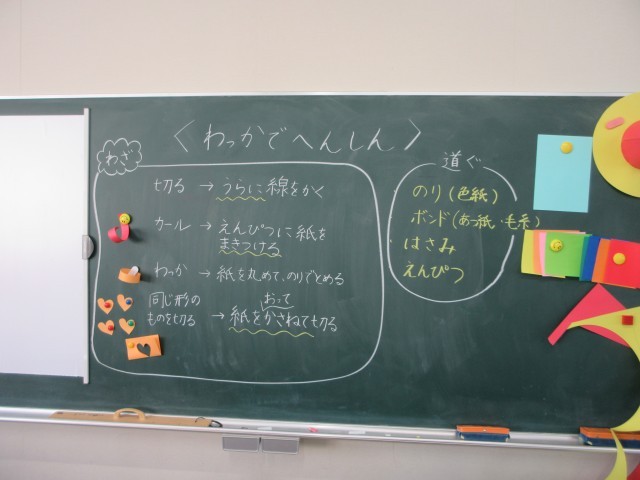 〈わっかでへんしん〉
わざ
切る → うらに線をかく
カール → えんぴつに紙を
まきつける
わっか → 紙を丸めて、のりでとめる
同じ形の
ものを切る → 紙をかさねて切る
おって
道ぐ
のり(色紙)
ボンド(あつ紙・毛糸)
はさみ
えんぴつ